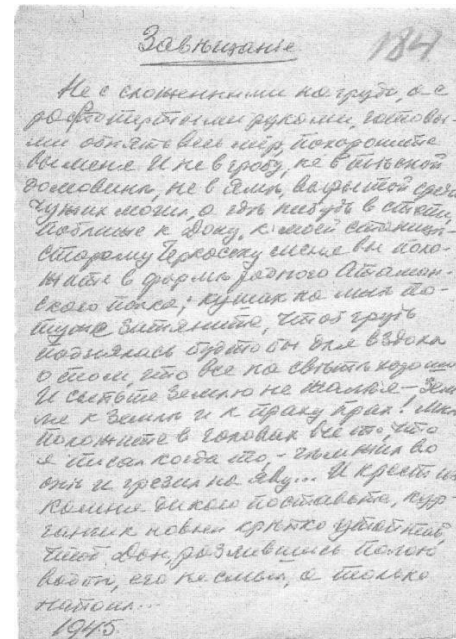 Завѣщанiе
184
Не с сложенными на груди, а с
распростертыми руками, готовы-
ми обнять весь мiр, похороните
вы меня. И не в гробу, не в тѣсной
домовинѣ, не в ямѣ, вырытой среди
чужих могил, а гдѣ нибудь в степи,
поближе к Дону, к моей станицѣ,
старому Черкасску меня вы поло-
жите в формѣ родного Атаман-
ского полка; кушак на мнѣ по-
туже затяните, чтоб грудь
поднялась будто бы для вздоха
о том, что все на свѣтѣ хорошо
И сыпьте землю не жалѣя – Зем
ля к землѣ и к праху прах! Мнѣ
положите в головах все то, что
я писал когда то, – чѣм жил во
снѣ и грезил на яву... И крест из
камня дикого поставьте, кур-
ганчик новый крѣпко утопчите,
чтоб Дон, разлившись полою
водой, его не смыл, а только
напоил...
1945.